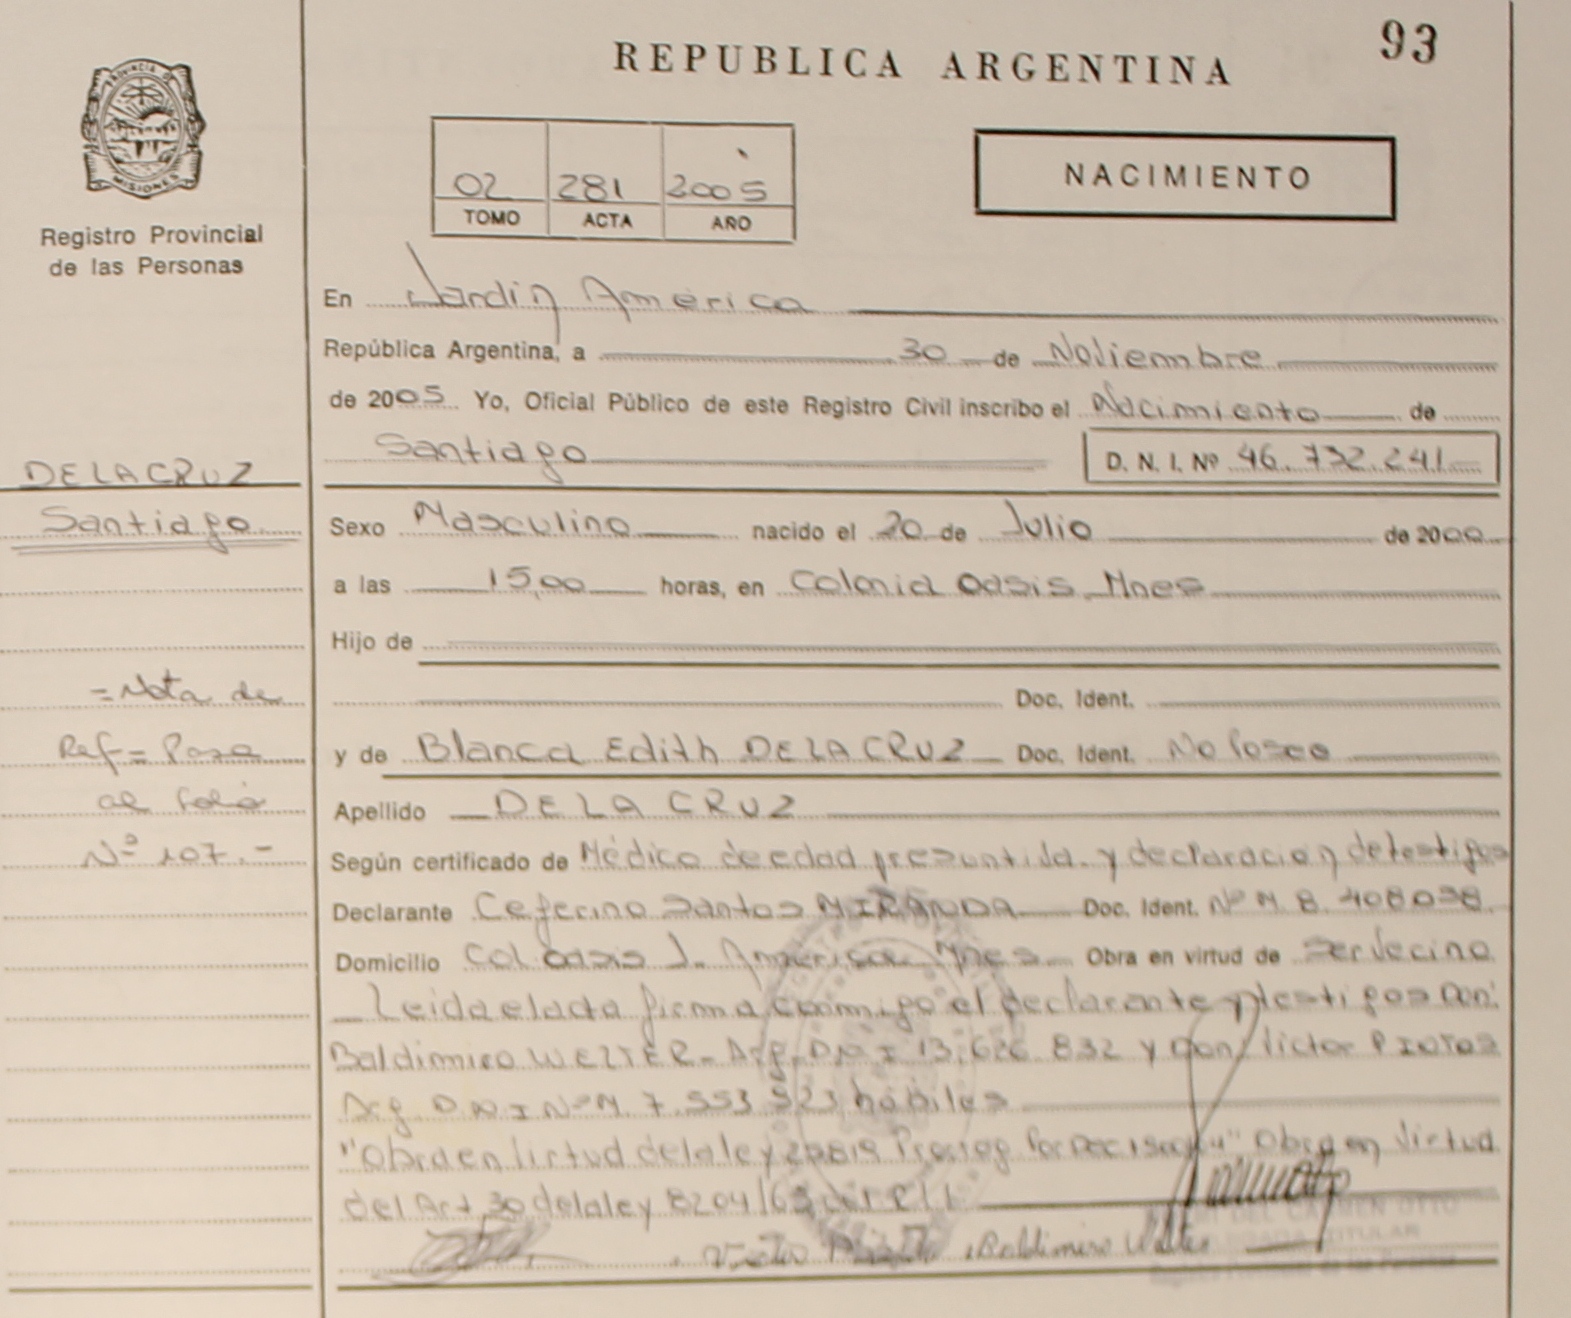 93
REPUBLICA ARGENTINA
PROVINCIA DE
MISIONES
Registro Provincial
de las Personas
02 281 2005
TOMO ACTA AÑO
NACIMIENTO
En Jardin America
República Argentina, a 30 de Noviembre
de 2005 Yo, Oficial Público de este Registro Civil inscribo el Nacimiento de
Santiago D. N. I. Nº 46.732.241
DE LA CRUZ
Santiago
Sexo Masculino nacido el 20 de Julio de 2000
a las 15,00 horas, en Colonia Oasis Mnes
Hijo de
Doc. Ident.
y de Blanca Edith DE LA CRUZ Doc. Ident. No Posee
Apellido DE LA CRUZ
=Nota de
Ref= Pasa
al folio
Nº 107.-
Según certificado de Médico de edad presuntiva y declaracion de testigos
Declarante Ceferino Santos MIRANDA Doc. Ident. Nº M. 8.408038
Domicilio Col Oasis J. America Mnes Obra en virtud de ser Vecino
Leida el acta firma conmigo el declarante y testigos Don:
Baldimiro WELTER. Arg. D.N.I 13.626.832 y Don Victor
Arg. D.N.I Nº M. 7.553.523 habiles
"Obra en Virtud de la ley Prorrog Por " Obra en Virtud
del Art 30 de la ley 8204/63
Baldimiro Welter
DEL CARMEN OTTO
TITULAR